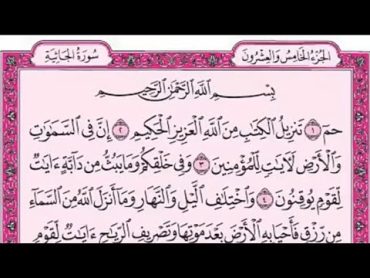 الجزء الخامس والعشرون
سورة الجاثية
بسم الله الرحمن الرحيم
حم ۝١ تنزيل الكتاب من الله العزيز الحكيم ۝٢ إن في السموات
والأرض لآيات للمؤمنين ۝٣ وفي خلقكم وما يبث من دابة ءايات
لقوم يوقنون ۝٤ واختلف اليل والنهار وما أنزل الله من السماء
من رزق فأحيا به الأرض بعد موتها وتصريف الرياح ءايات لقوم